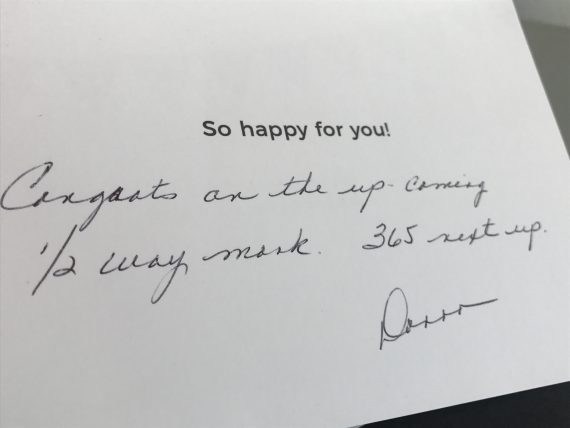 So happy for you!
Congrats on the up-coming
1/2 way mark. 365 next up.